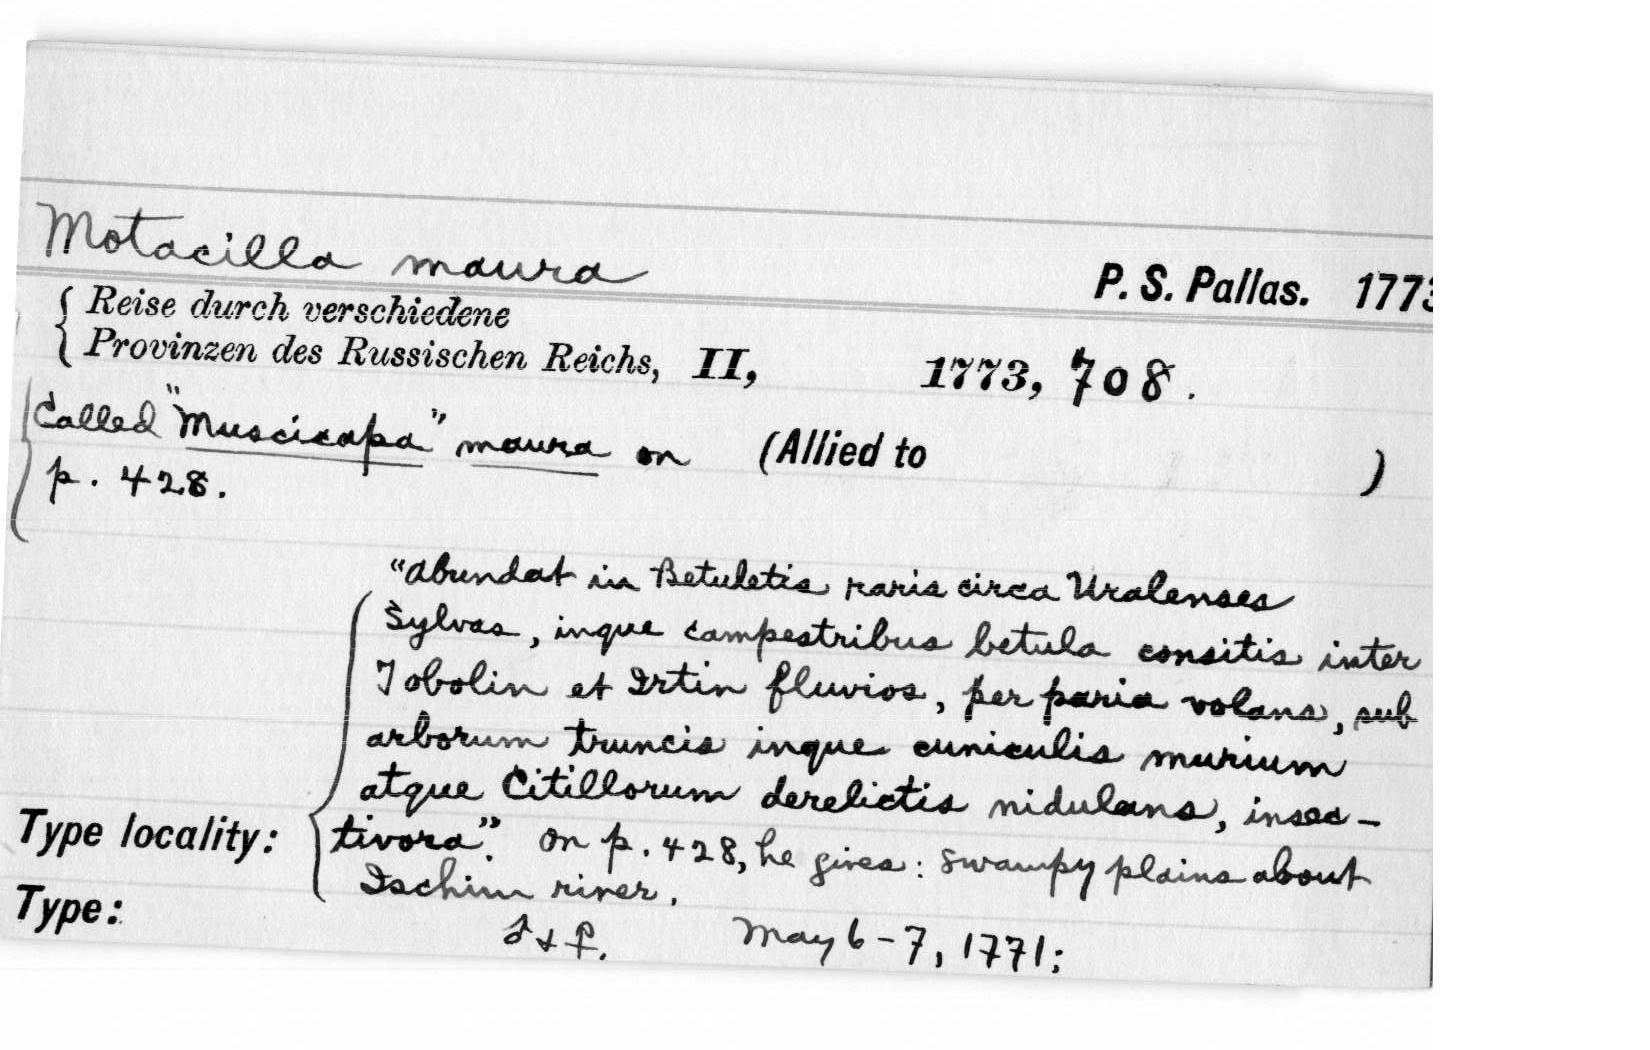 Motacilla maura
P. S. Pallas. 1773
Reise durch verschiedene
Provinzen des Russischen Reichs, II, 1773, 708.
Called "Muscicapa" maura on (Allied to )
p. 428.
"Abundat in Betuletis raris circa Uralenses
Sylvas, inque campestribus betula consitis inter
Tobolin et Irtin fluvios, per paria volans, sub
arborum truncis inque cuniculis murium
atque Citillorum derelictis nidulans, insec-
Type locality: tivora". On p. 428, he gives: swampy plains about
Ischim river.
Type: ♂ & ♀. May 6-7, 1771;